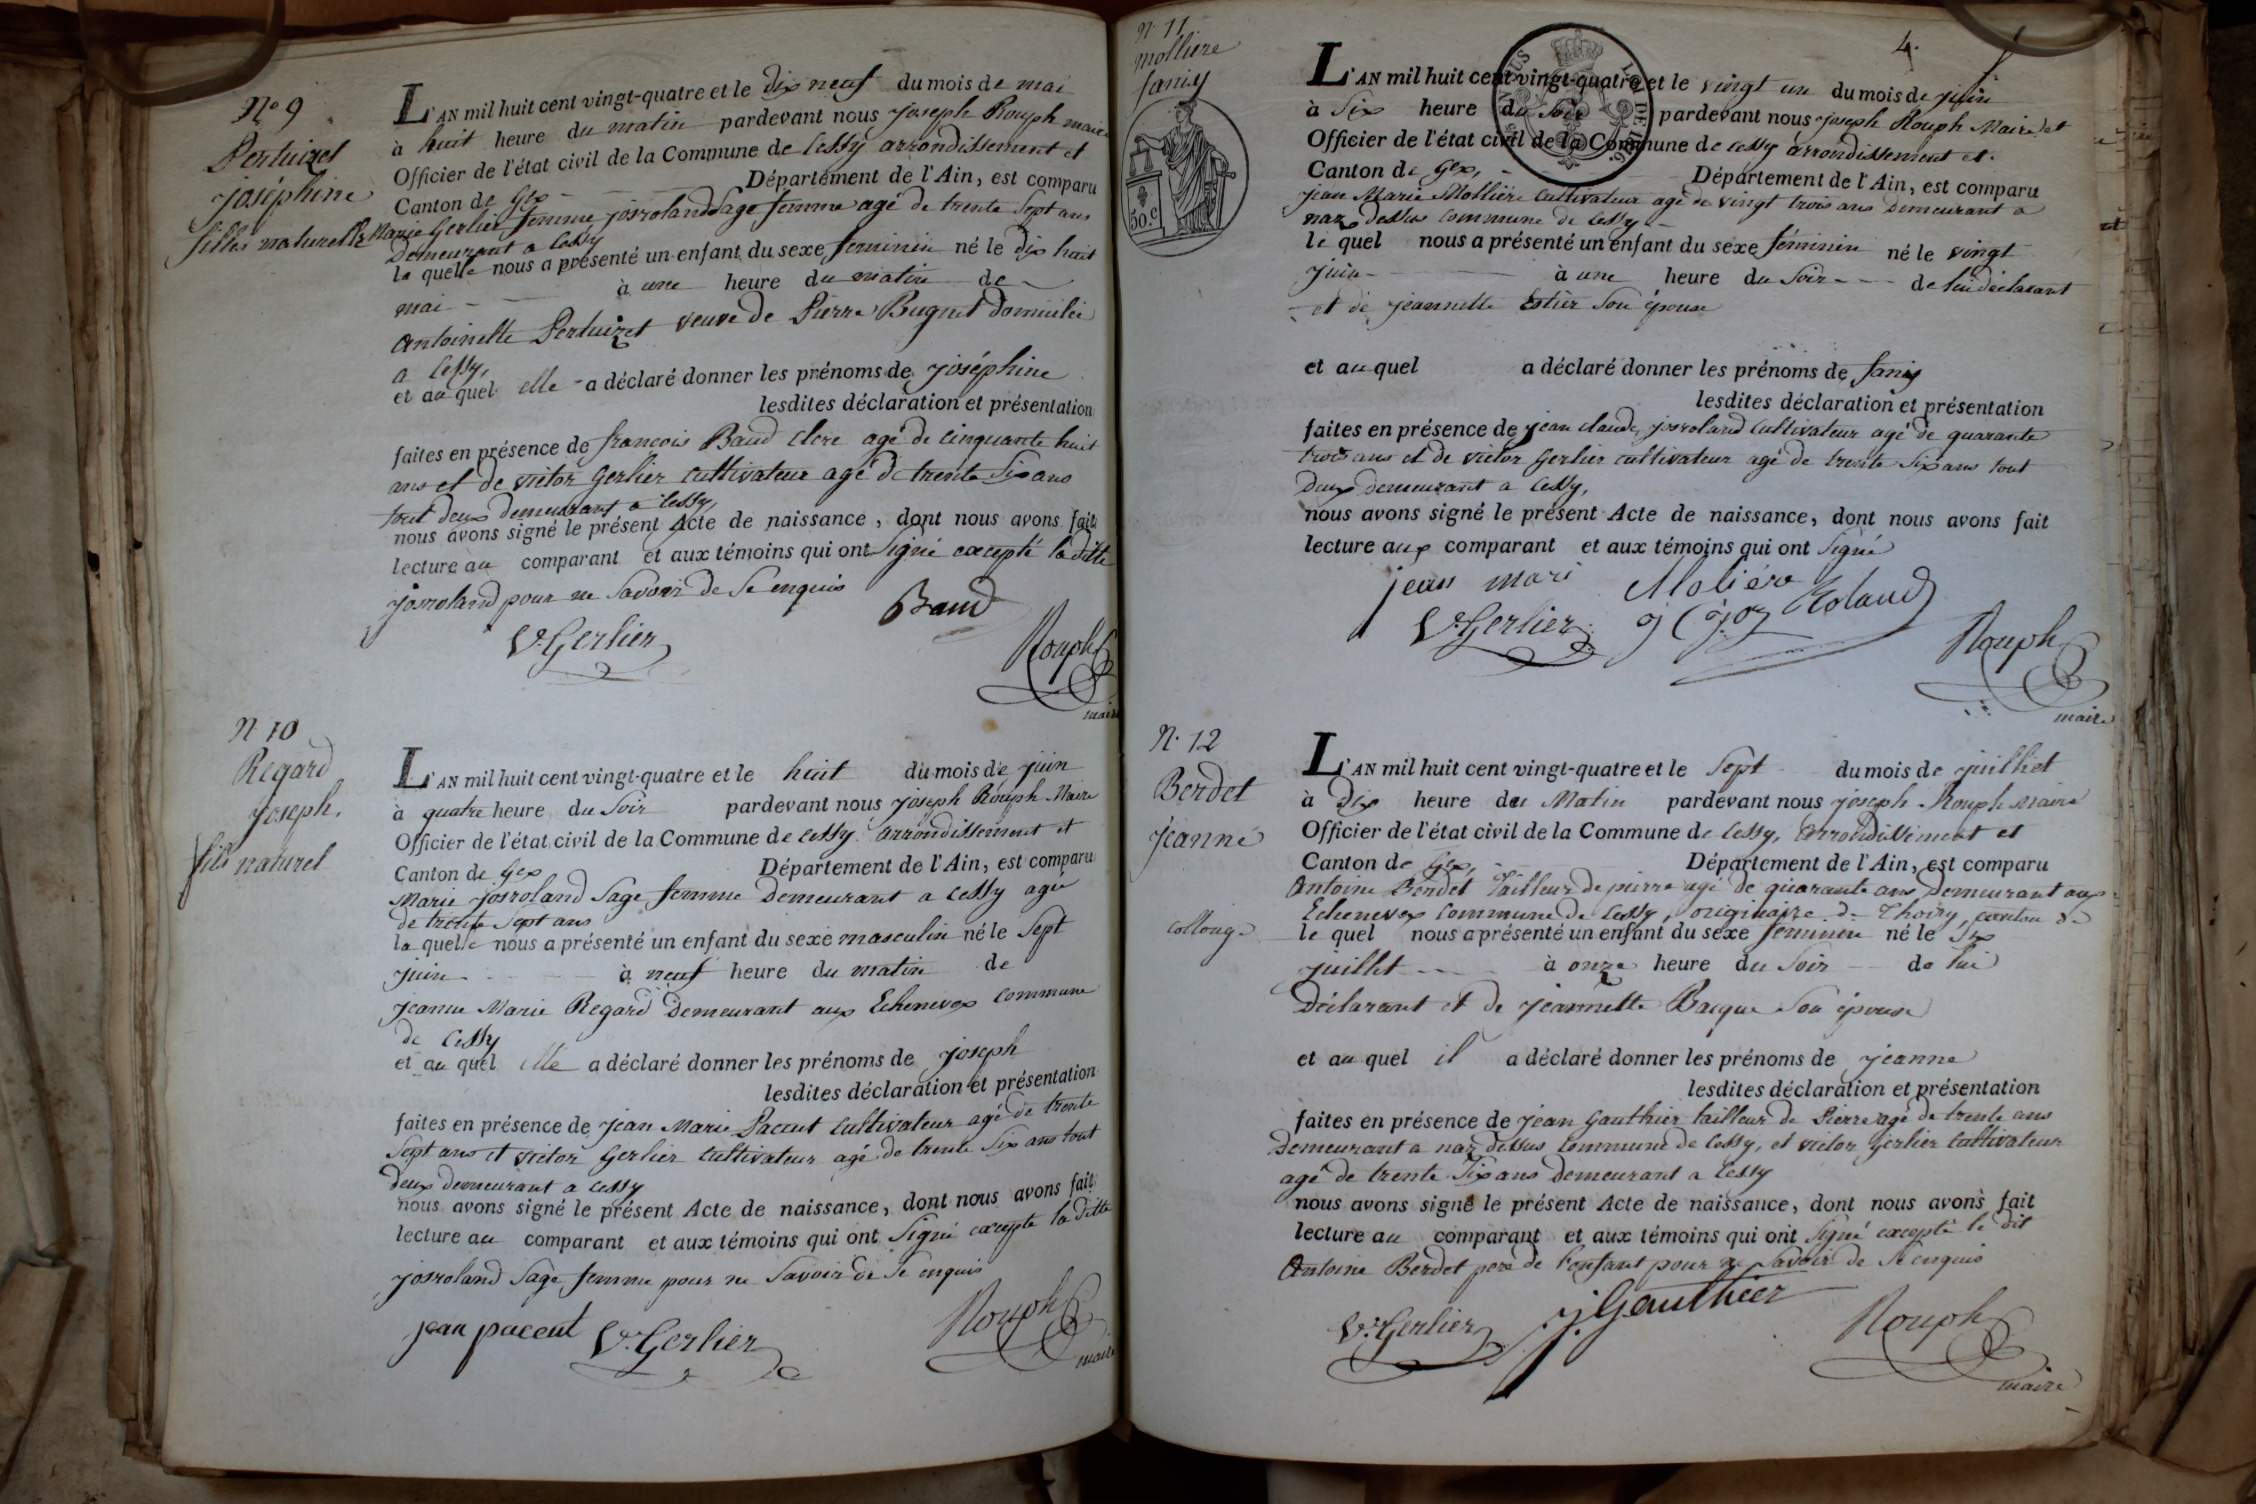 N° 9
Pertuizet
joséphine
filles naturelle
L'AN mil huit cent vingt-quatre et le dix neuf du mois de mai
à huit heure du matin pardevant nous joseph Rouph maire
Officier de l'état civil de la Commune de Cessy arrondissement et
Canton de Gex Département de l'Ain, est comparu
Marie Gerlier femme josroland Sage femme agé de trente Sept ans
Demeurant a Cessy
la quelle nous a présenté un enfant du sexe feminin né le dix huit
mai à une heure du matin de
Antoinette Pertuizet veuve de Pierre Bugnet domiciliée
a Cessy,
et au quel elle a déclaré donner les prénoms de joséphine
lesdites déclaration et présentation
faites en présence de francois Baud clerc agé de cinquante huit
ans et de victor Gerlier cultivateur agé de trente Six ans
tout deux demeurant a Cessy,
nous avons signé le présent Acte de naissance, dont nous avons fait
lecture au comparant et aux témoins qui ont Signé excepté la ditte
josroland pour ne Savoir de Se enquis
Baud
V. Gerlier
Rouph
maire
N 10
Regard
joseph.
fils naturel
L'AN mil huit cent vingt-quatre et le huit du mois de juin
à quatre heure du Soir pardevant nous joseph Rouph Maire
Officier de l'état civil de la Commune de Cessy arrondissement et
Canton de Gex Département de l'Ain, est comparu
Marie josroland Sage femme Demeurant a Cessy agée
de trente Sept ans
la quelle nous a présenté un enfant du sexe masculin né le Sept
juin à neuf heure du matin de
jeanne Marie Regard Demeurant aux Echenevex commune
de Cessy
et au quel elle a déclaré donner les prénoms de joseph
lesdites déclaration et présentation
faites en présence de jean Marie Pacent Cultivateur agé de trente
Sept ans et victor Gerlier cultivateur agé de trente Six ans tout
deux demeurant a Cessy
nous avons signé le présent Acte de naissance, dont nous avons fait
lecture au comparant et aux témoins qui ont Signé excepte la ditte
josroland Sage femme pour ne Savoir de Se enquis
jean pacent V. Gerlier
Rouph
maire
N. 11
molliere
fanis
50.c
4.
L'AN mil huit cent vingt-quatre et le vingt un du mois de juin
à Six heure du Soir pardevant nous joseph Rouph Maire et
Officier de l'état civil de la Commune de Cessy arrondissement et
Canton de Gex, Département de l'Ain, est comparu
jean Marie Molliere cultivateur agé de vingt trois ans Demeurant a
naz dessus commune de Cessy
le quel nous a présenté un enfant du sexe féminin né le vingt
juin à une heure du Soir de lui déclarant
et de jeannette Estier Son épouse
et au quel a déclaré donner les prénoms de fanis
lesdites déclaration et présentation
faites en présence de jean claude josroland cultivateur agé de quarante
trois ans et de victor Gerlier cultivateur agé de trente Six ans tout
deux demeurant a Cessy,
nous avons signé le présent Acte de naissance, dont nous avons fait
lecture aux comparant et aux témoins qui ont Signé
jean mari Moliére
V. Gerlier Roland
Rouph
maire
N. 12
Berdet
jeanne
collonge
L'AN mil huit cent vingt-quatre et le Sept du mois de juilliet
à Dix heure du Matin pardevant nous joseph Rouph Maire
Officier de l'état civil de la Commune de Cessy, arrondissement et
Canton de Gex, Département de l'Ain, est comparu
Antoine Berdet Tailleur de pierre agé de quarante ans Demeurant aux
Echenevex commune de Cessy, originaire de Thoiry, canton de
le quel nous a présenté un enfant du sexe feminin né le Six
juillet à onze heure du Soir de lui
Déclarant et de jeannette Bacque Son épouse
et au quel il a déclaré donner les prénoms de jeanne
lesdites déclaration et présentation
faites en présence de jean Gauthier tailleur de Pierre agé de trente ans
Demeurant a naz dessus commune de Cessy, et victor Gerlier cultivateur
agé de trente Six ans demeurant a Cessy
nous avons signé le présent Acte de naissance, dont nous avons fait
lecture au comparant et aux témoins qui ont Signé excepté le dit
Antoine Berdet pere de l'enfant pour ne Savoir de Se enquis
V. Gerlier j. Gauthier
Rouph
maire